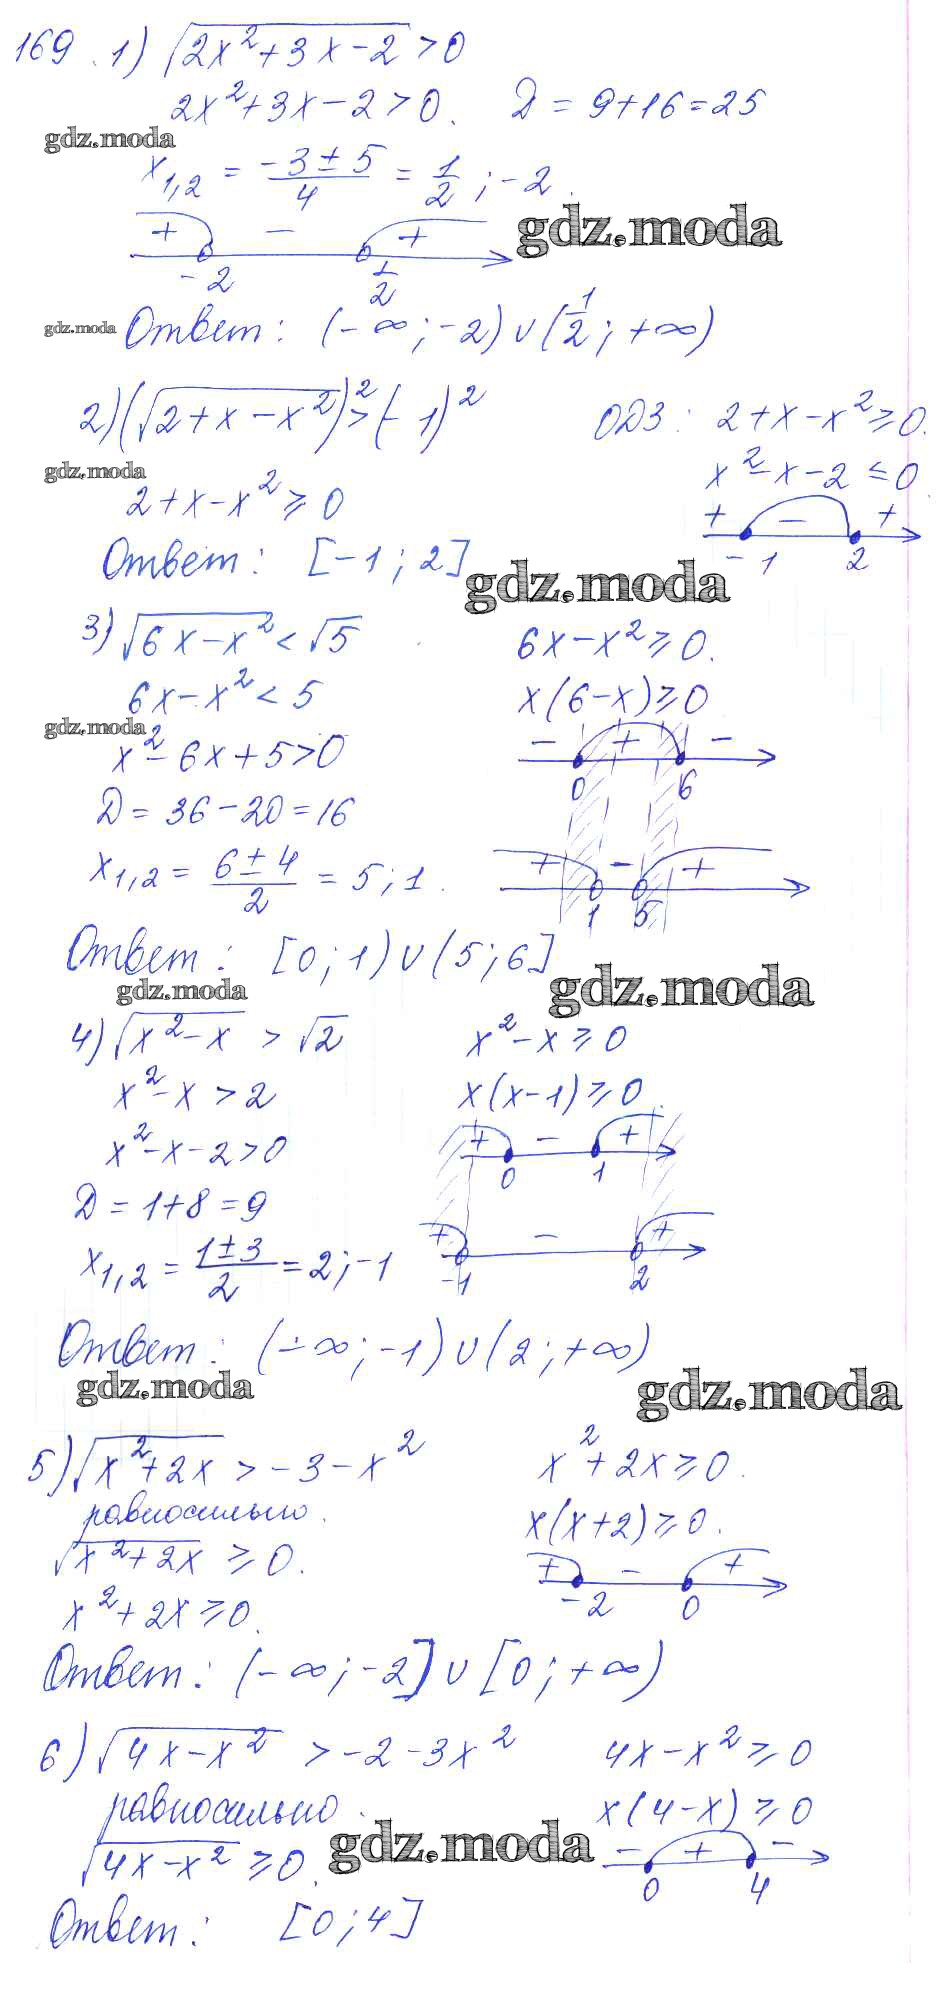 169. 1) √(2x²+3x-2) > 0
2x²+3x-2>0. D = 9+16=25
gdz.moda
x₁,₂ = (-3±5)/4 = 1/2; -2.
+ - +
gdz.moda
-2 1/2
gdz.moda
Ответ: (-∞; -2) ∪ (1/2; +∞)
2) (√(2+x-x²))² > (-1)² ОДЗ: 2+x-x² ≥ 0.
gdz.moda
x²-x-2 ≤ 0
2+x-x² ≥ 0
+ - +
-1 2
Ответ: [-1; 2]
gdz.moda
3) √(6x-x²) < √5 6x-x² ≥ 0.
6x-x² < 5 x(6-x) ≥ 0
gdz.moda
- + -
x²-6x+5>0
0 6
D = 36-20=16
x₁,₂ = (6±4)/2 = 5; 1.
+ - +
1 5
Ответ: [0; 1) ∪ (5; 6]
gdz.moda
gdz.moda
4) √(x²-x) > √2 x²-x ≥ 0
x²-x > 2 x(x-1) ≥ 0.
x²-x-2>0
+ - +
0 1
D = 1+8 = 9
x₁,₂ = (1±3)/2 = 2; -1
+ - +
-1 2
Ответ: (-∞; -1) ∪ (2; +∞)
gdz.moda
gdz.moda
5) √(x²+2x) > -3-x² x²+2x ≥ 0.
равносильно. x(x+2) ≥ 0.
√(x²+2x) ≥ 0.
+ - +
-2 0
x²+2x ≥ 0.
Ответ: (-∞; -2] ∪ [0; +∞)
6) √(4x-x²) > -2-3x² 4x-x² ≥ 0
равносильно. x(4-x) ≥ 0
gdz.moda
√(4x-x²) ≥ 0.
- + -
0 4
Ответ: [0; 4]